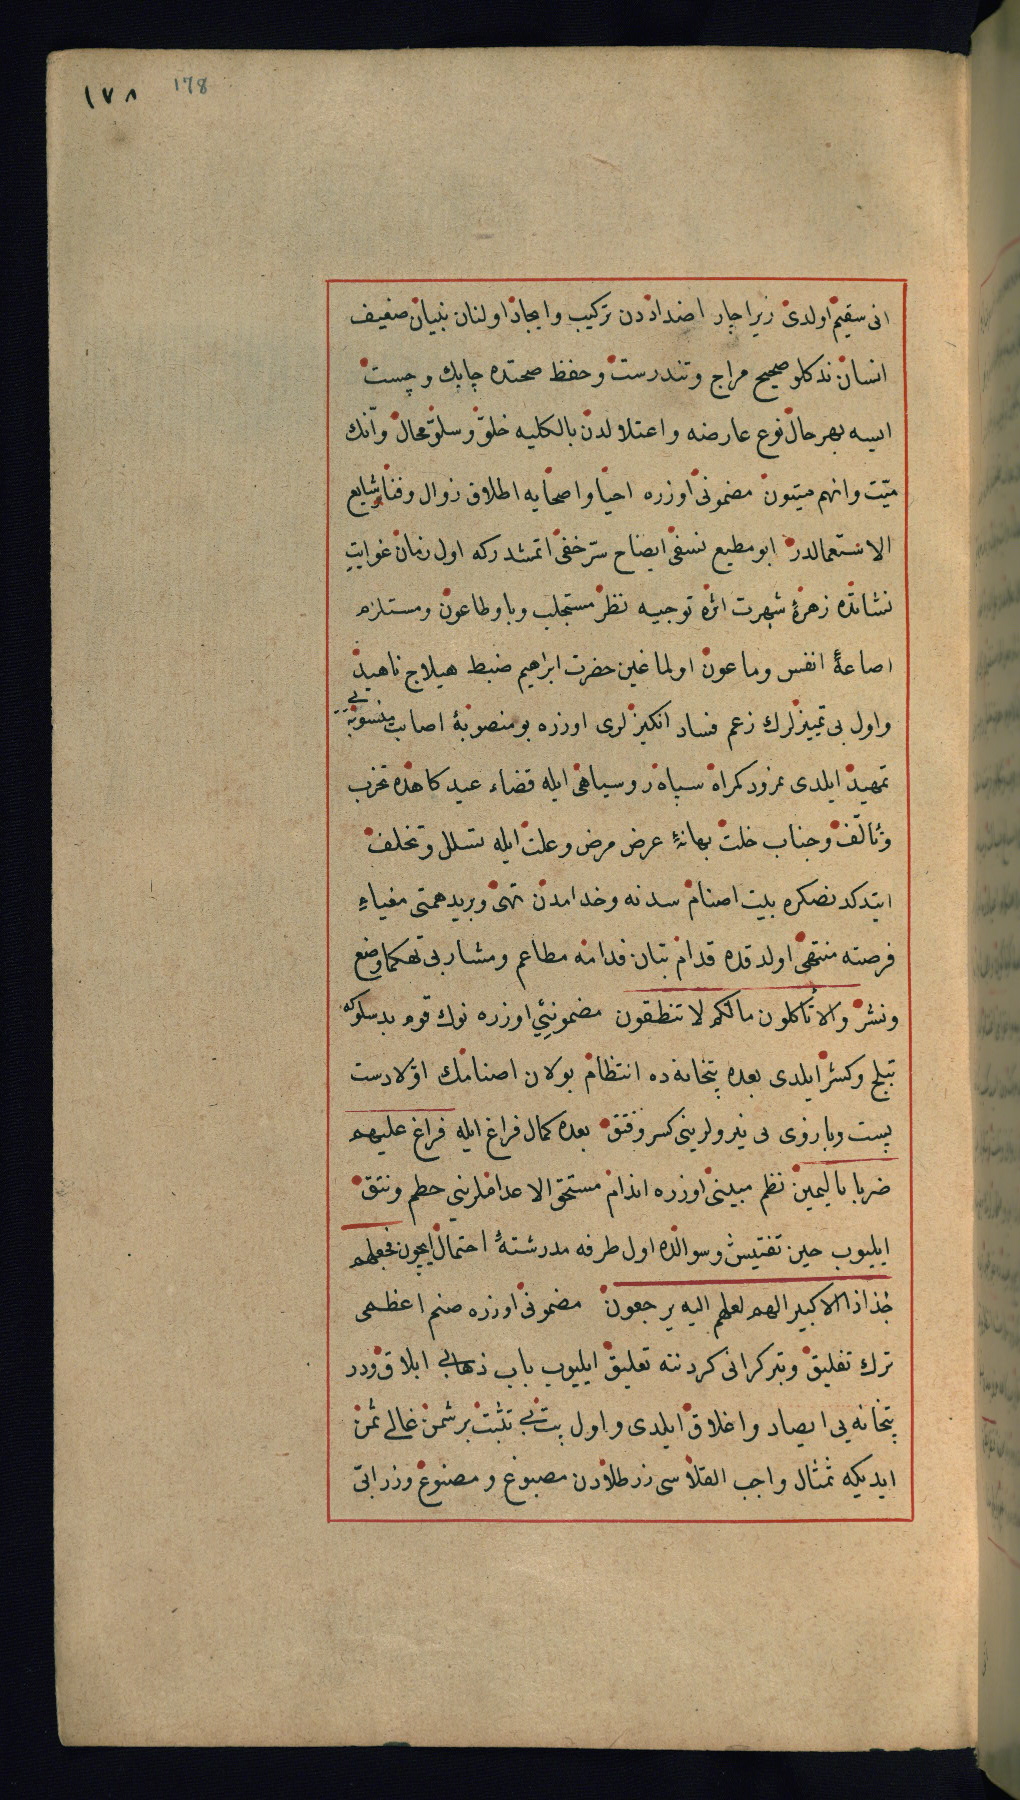 ١٧٨ 178
انى سقيم اولدى زيرا چار اضداددن تركيب وايجاد اولنان بنيان ضعيف
انسان ندكلو صحيح مزاج وتندرست وحفظ صحتده چابك وچست
ايسه بهرحال نوع عارضه واعتلالدن بالكليه خلوّ وسلوّ محال وانّك
ميّت وانهم ميتون مضمونى اوزره احيا واصحايه اطلاق زوال وفنا شايع
الاستعمالدر ابو مطيع نسفى ايضاح سرّ خفى اتمشدركه اول زمان غوايت
نشانده زهرهٔ شهرت اثره توجيه نظر مستجلب وبا وطاعون ومستلزم
اضاعهٔ انفس وماعون اولماغين حضرت ابراهيم ضبط هيلاج ناهيد
واول بى تميزلرك زعم فساد انكيزلرى اوزره بو منصوبهٔ اصابت منسوبه يى
تمهيد ايلدى نمرود كمراه سپاه روسياهى ايله قضاء عيدكاهده تحزب
وتألّف وجناب خلت بهانهٔ عرض مرض وعلت ايله تسلل وتخلف
ايتدكدنصكره بيت اصنام سدنه وخدامدن تهى وبريد همتى مغياء
فرصته منتهى اولدقده قدام بتان فدامه مطاعم ومشاربى تهكما وضع
ونشر والا تأكلون مالكم لا تنطقون مضمونيى اوزره نوك قوم بدسلوكه
تبلج وكسر ايلدى بعده بتخانه ده انتظام بولان اصنامك اوّلا دست
پست وبازوى بى نيرولرينى كسر وفتق بعده كمال فراغ ايله فراغ عليهم
ضربا باليمين نظم مبينى اوزره اندام مستحق الاعداملرينى حطم ونتق
ايليوب حين تفتيش وسوالده اول طرفه مدرشتهٔ احتمال ايچون فجعلهم
جذاذا الا كبيرا لهم لعلهم اليه يرجعون مضمونى اوزره صنم اعظمى
ترك تفليق وتبر كرانى كردننه تعليق ايليوب باب ذهابى ابلاق ودر
بتخانه يى ايصاد واغلاق ايلدى واول بت بى تثبت بر شمن غالى ثمن
ايديكه تمثال واجب القلاسى زر طلادن مصبوغ ومصنوع وزرابى